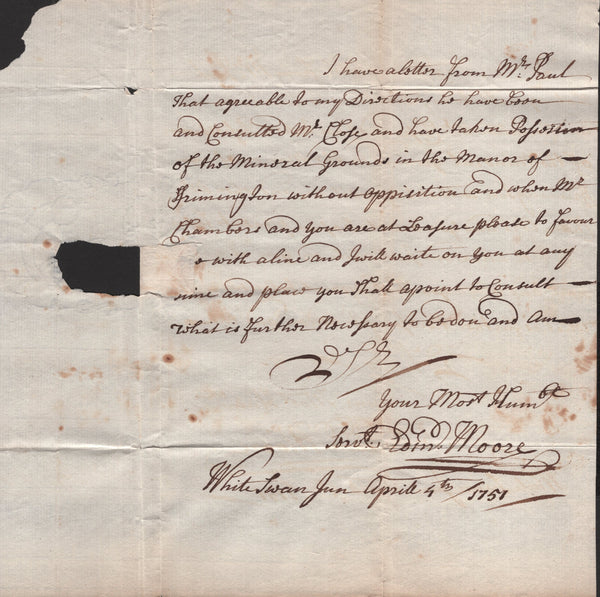 I have a letter from Mr. Paul
That agreeable to my Directions he have been
and Consulted Mr. Close and have taken Possession
of the Mineral Grounds in the Manor of
Brimington without oppisition and when Mr
Chambers and you are at Leasure please to favour
e with a line and I will waite on you at any
and place you Shall apoint to Consult
What is further Necessary to be done and Am
Sr
Your Most Humble
Servt. Edwd. Moore
White Swan Inn Aprile 4th 1751